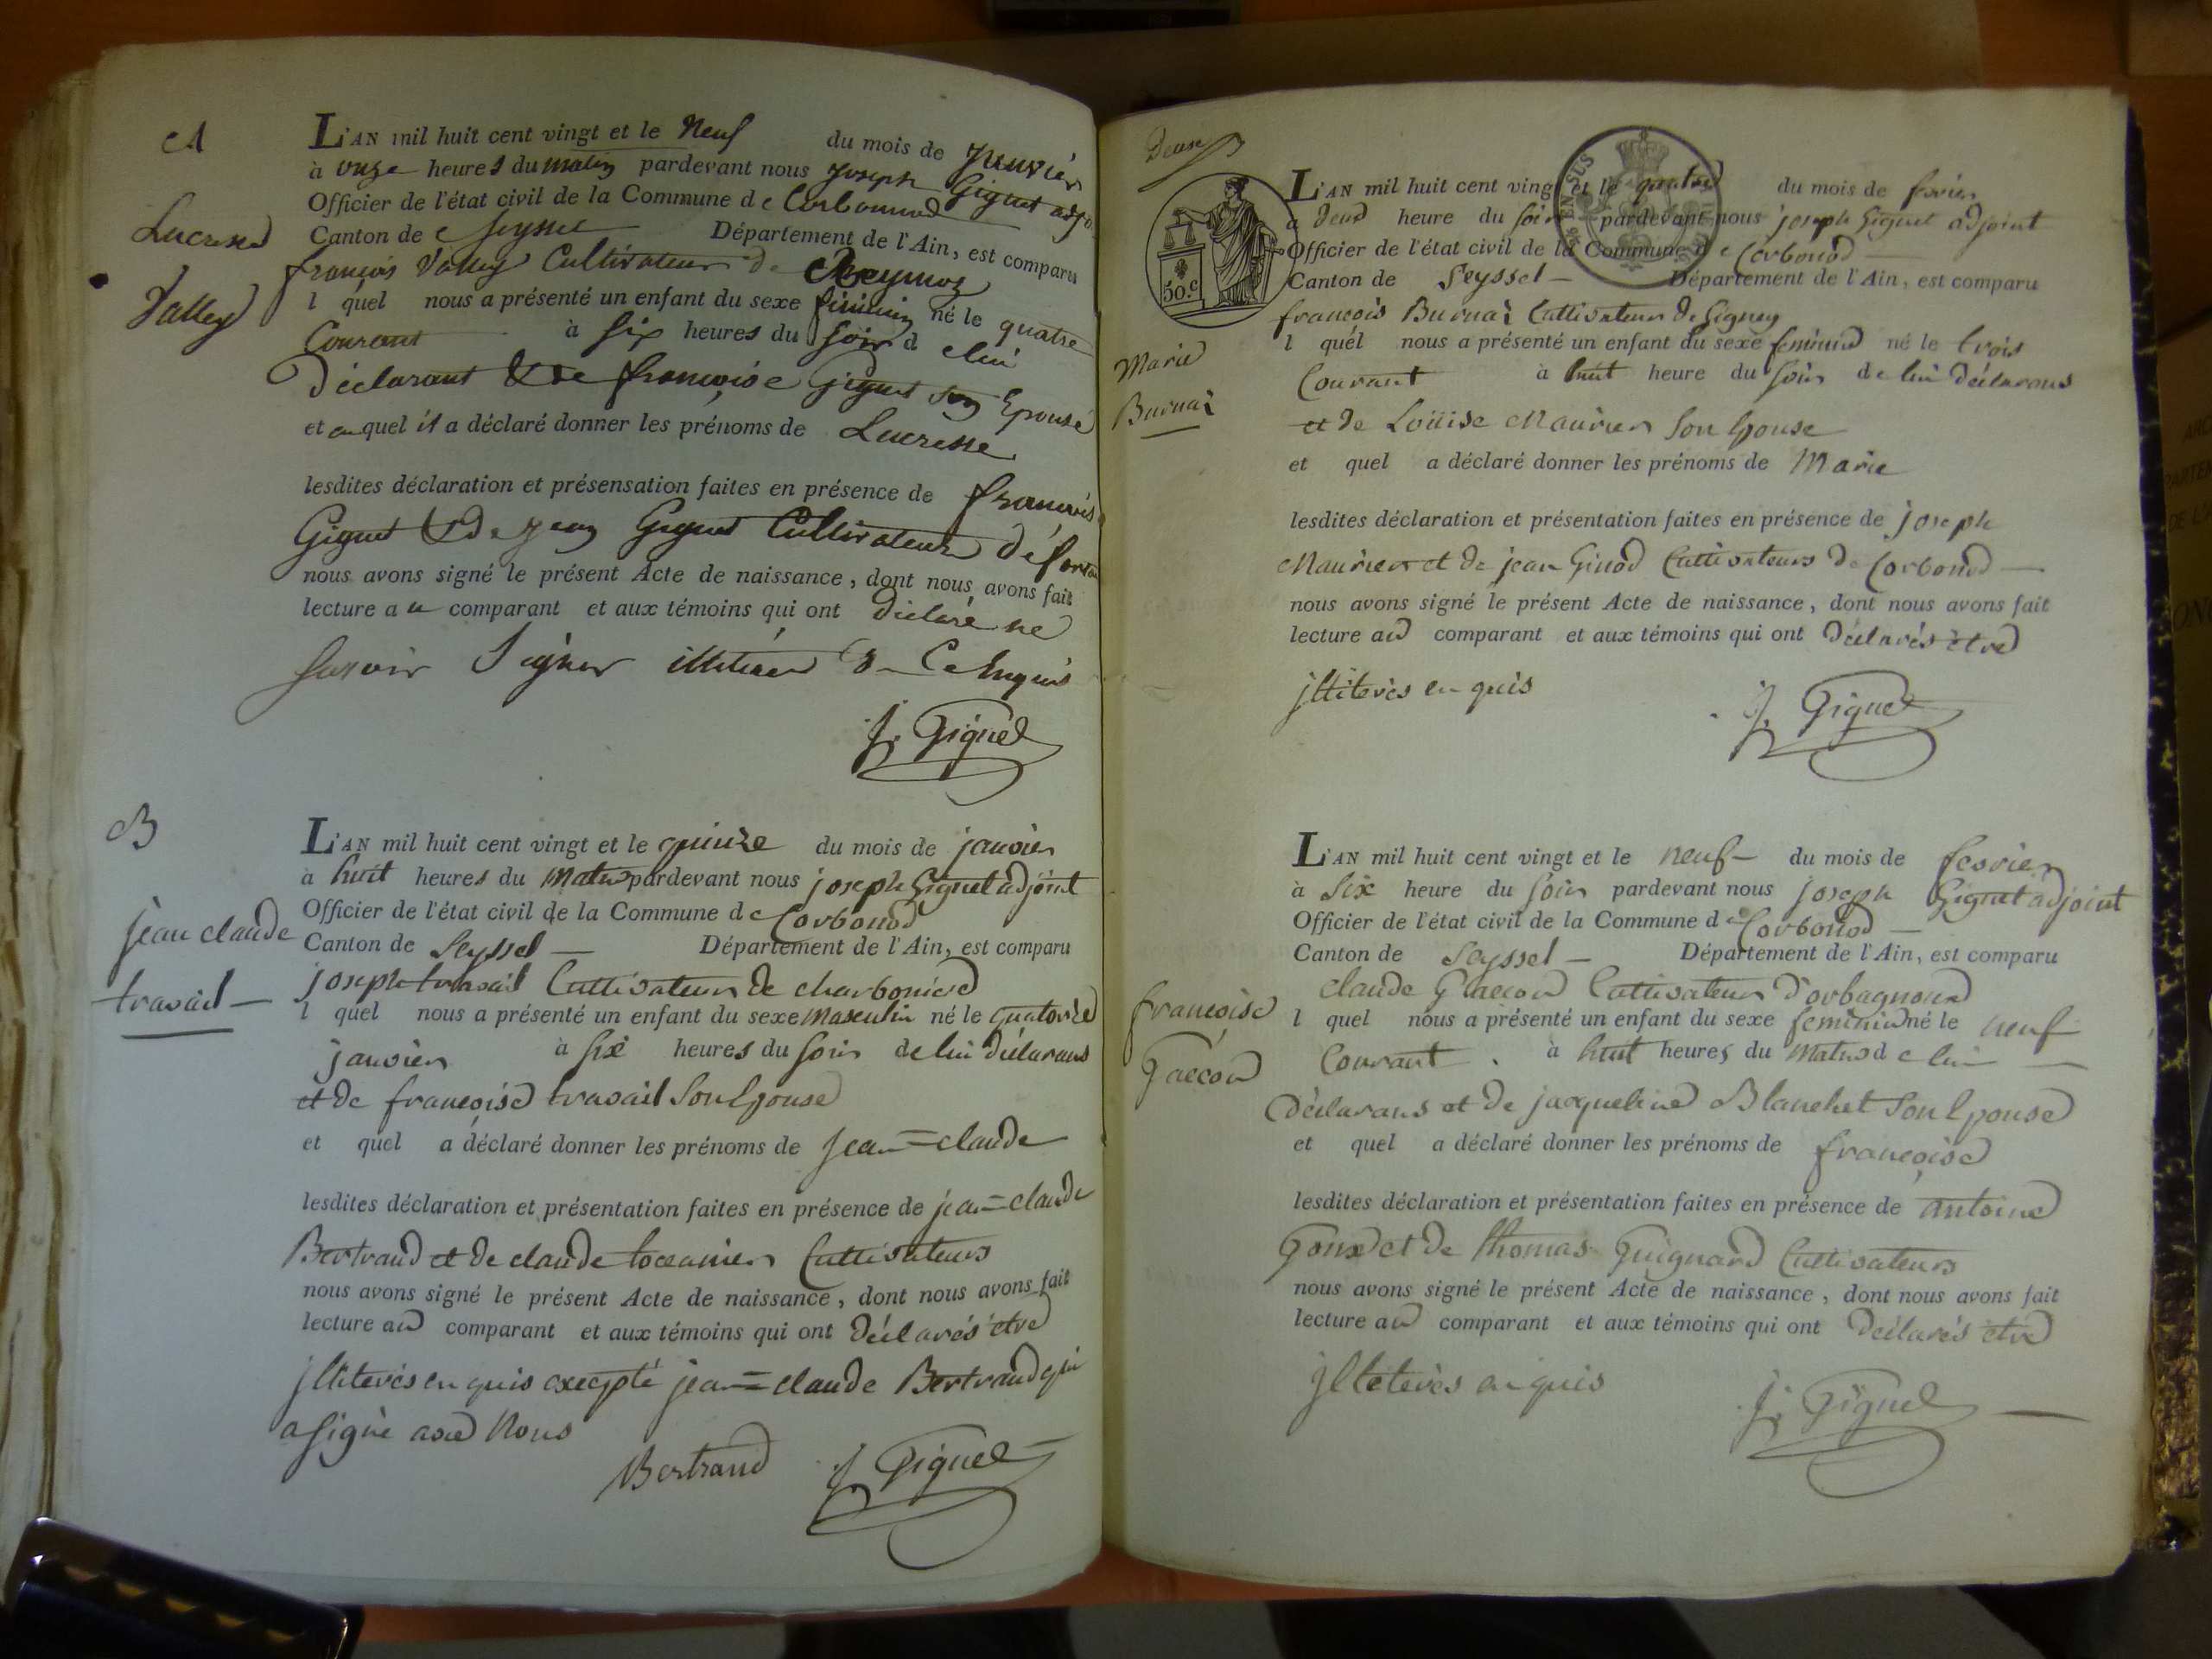 A
Lucresse
Valley
L'AN mil huit cent vingt et le Neuf du mois de Janvier
à onze heures du matin pardevant nous Joseph Giguet adjo.
Officier de l'état civil de la Commune de Corbonnod
Canton de Seyssel Département de l'Ain, est comparu
françois Valley Cultivateur de
l quel nous a présenté un enfant du sexe féminin né le quatre
Courant à Six heures du Soir de lui
déclarant & de françoise Giguet son Epouse
et auquel il a déclaré donner les prénoms de Lucresse
lesdites déclaration et présensation faites en présence de françois
Giguet & de Jean Giguet Cultivateurs
nous avons signé le présent Acte de naissance, dont nous avons fait
lecture au comparant et aux témoins qui ont déclaré ne
Savoir Signer illitéré de Ce Enquis
J. Giguet
B
jean claude
travail
L'AN mil huit cent vingt et le quinze du mois de janvier
à huit heures du Matin pardevant nous joseph Giguet adjoint
Officier de l'état civil de la Commune de Corbonod
Canton de Seyssel Département de l'Ain, est comparu
joseph travail Cultivateur de charboniere
l quel nous a présenté un enfant du sexe Masculin né le quatorze
janvier à six heures du soir de lui déclarans
et de françoise travail Son Epouse
et quel a déclaré donner les prénoms de Jean=claude
lesdites déclaration et présentation faites en présence de jean=claude
Bertrand et de claude Cultivateurs
nous avons signé le présent Acte de naissance, dont nous avons fait
lecture au comparant et aux témoins qui ont déclarés être
jlliterés enquis excepté jean=claude Bertrand qui
a signé avec Nous
Bertrand J. Giguet
Deux
EN SUS
50.c
Marie
Burnai
L'AN mil huit cent vingt et le quatre du mois de fevrier
à deux heure du soir pardevant nous joseph Giguet adjoint
Officier de l'état civil de la Commune de Corbonod
Canton de Seyssel Département de l'Ain, est comparu
francois Burnai Cultivateur de Gigney
l quél nous a présenté un enfant du sexe feminin né le trois
Courant à huit heure du soir de lui déclarans
et de Loüise Maurier Son Epouse
et quel a déclaré donner les prénoms de Marie
lesdites déclaration et présentation faites en présence de joseph
Maurier et de jean Ginod Cultivateurs de Corbonod
nous avons signé le présent Acte de naissance, dont nous avons fait
lecture au comparant et aux témoins qui ont déclarés être
jlliterés enquis
J. Giguet
françoise
Gaccon
L'AN mil huit cent vingt et le neuf du mois de fevrier
à Six heure du soir pardevant nous joseph Giguet adjoint
Officier de l'état civil de la Commune de Corbonod
Canton de Seyssel Département de l'Ain, est comparu
claude Gaccon Cultivateur d'orbagnoux
l quel nous a présenté un enfant du sexe feminin né le neuf
Courant à huit heures du Matin de lui
déclarans et de jacqueline Blanchet Son Epouse
et quel a déclaré donner les prénoms de françoise
lesdites déclaration et présentation faites en présence de antoine
Goux et de thomas Guignard Cultivateurs
nous avons signé le présent Acte de naissance, dont nous avons fait
lecture au comparant et aux témoins qui ont déclarés être
jlleterés enquis
J. Giguet